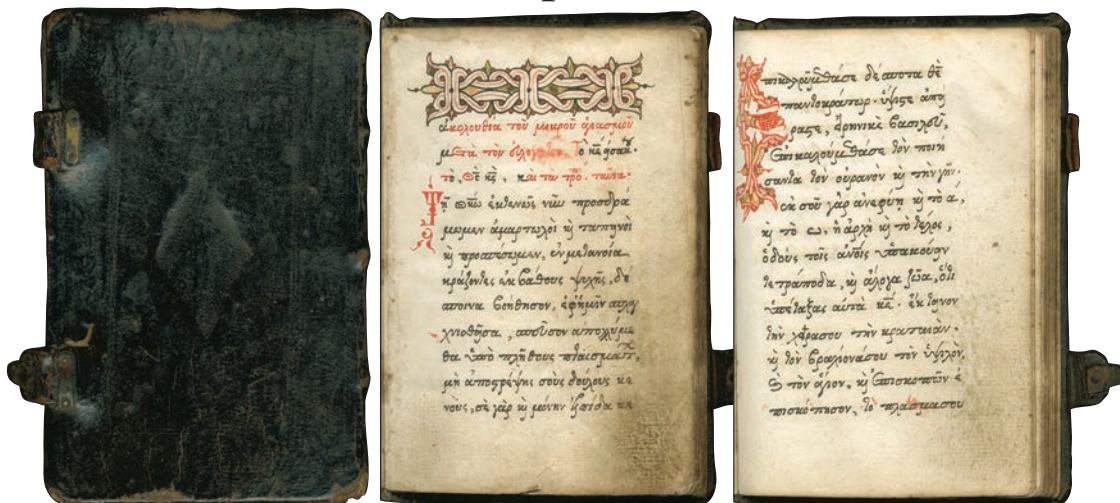 ἀκολουθία τοῦ μικροῦ ἁγιασμοῦ
μετὰ τὸν Τὸ κε εἰσακ.
τὸ, Θς κς, καὶ τὰ τρο. ταῦτα.
Τῇ Θκω ἐκτενῶς νῦν προσδρά
μωμεν ἁμαρτωλοὶ κ ταπηνοὶ
κ προσπέσωμεν, ἐν μετανοία
κράζοντες ἐκ βάθους ψυχῆς, δέ
σποινα βοήθησον, ἐφ ἡμῖν σπλαγ
χνισθῆσα, σπεῦσον ἀπολλύμε
θα ὑπὸ πλήθους πταισμάτ,
μὴ ἀποστρέψης σοὺς δούλους κε
νοὺς, σὲ γὰρ κ μόνην ἐλπίδα κε
πικαλούμεθά σε δέσποτα θὲ
παντοκράτωρ. ὕψιστε
βασιλεῦ,
Ἐπικαλούμεθά σε τὸν ποιή
σαντα τὸν οὐρανὸν κ τὴν γῆν.
ἐκ σοῦ γὰρ ἀνεφύη κ τὸ α,
κ τὸ ω, ἡ ἀρχὴ κ τὸ τέλος,
ὁ δοὺς τοῖς ἀνοις ὑπακούειν
τετράποδα, κ ἄλογα ζῶα, ὅτι
ὑπέταξας αὐτὰ κε. ἔκτεινον
τὴν χεῖρά σου τὴν κραταιὰν.
κ τὸν βραχίονά σου τὸν ὑψιλὸν,
τὸν ἅγιον, κ ἐπισκοπτῶν ἐ
πισκόπησον, τὸ πλάσμα σου